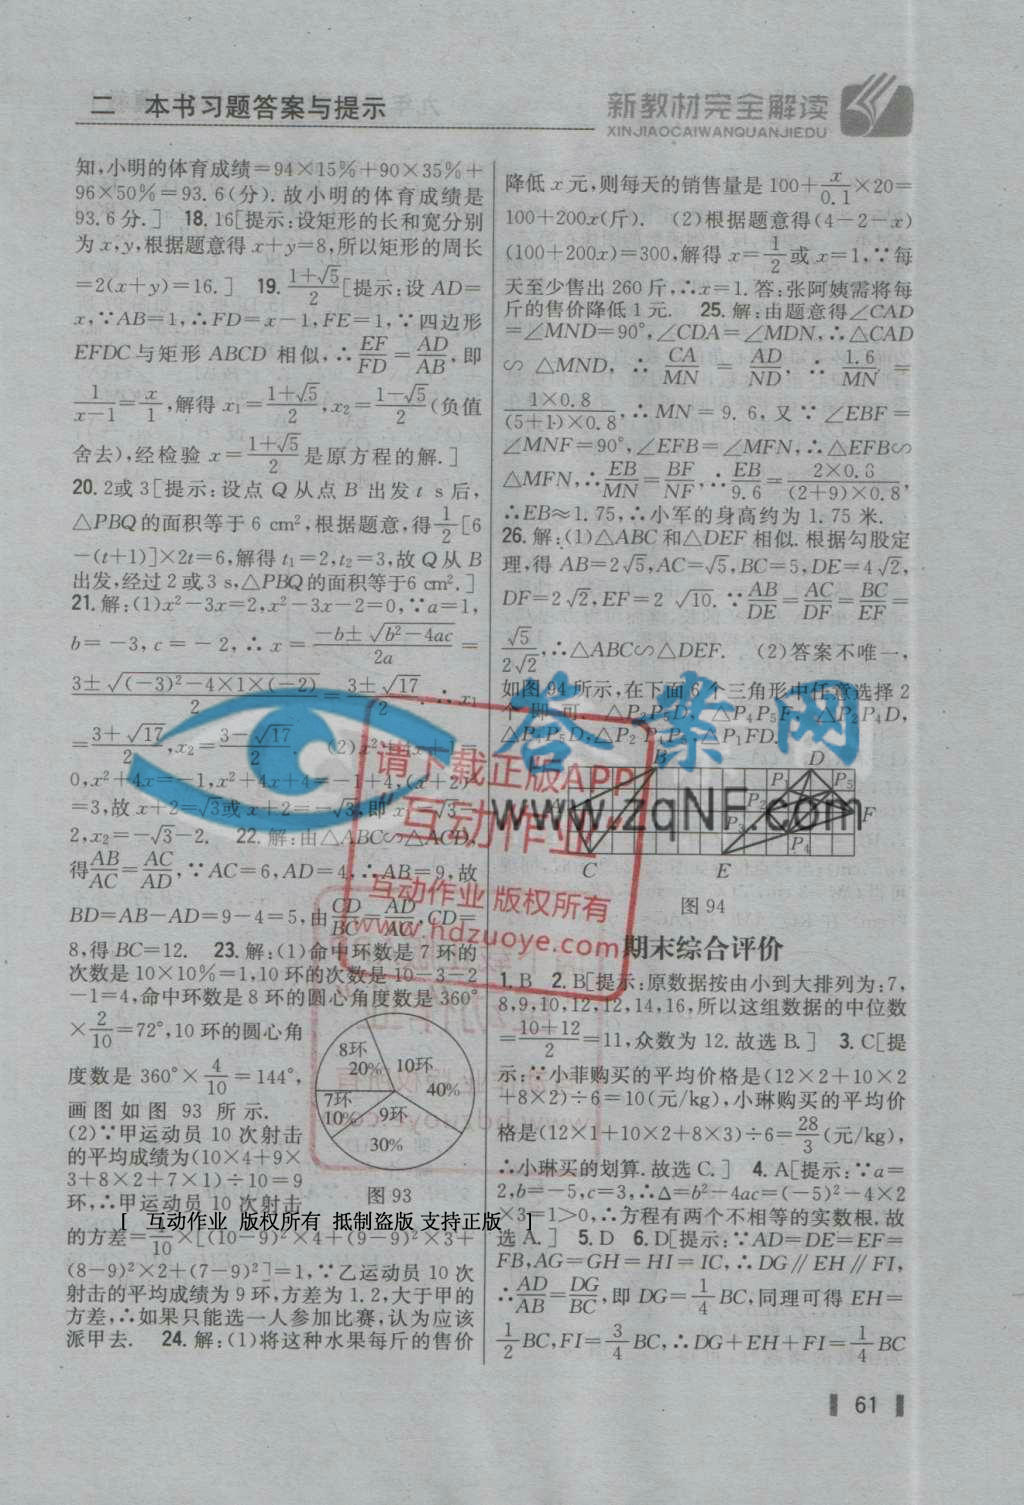 二 本书习题答案与提示
新教材完全解读
XINJIAOCAIWANQUANJIEDU
知,小明的体育成绩=94×15%+90×35%+
96×50%=93.6(分).故小明的体育成绩是
93.6分.] 18.16[提示:设矩形的长和宽分别
为x,y,根据题意得x+y=8,所以矩形的周长
=2(x+y)=16.] 19.(1+√5)/2[提示:设AD=
x,∵AB=1,∴FD=x-1,FE=1,∵四边形
EFDC与矩形ABCD相似,∴EF/FD=AD/AB,即
1/(x-1)=x/1,解得x₁=(1+√5)/2,x₂=(1-√5)/2(负值
舍去),经检验x=(1+√5)/2是原方程的解.]
20.2或3[提示:设点Q从点B出发t s后,
△PBQ的面积等于6 cm²,根据题意,得1/2[6
-(t+1)]×2t=6,解得t₁=2,t₂=3,故Q从B
出发,经过2或3 s,△PBQ的面积等于6 cm².]
21.解:(1)x²-3x=2,x²-3x-2=0,∵a=1,
b=-3,c=-2,∴x=(-b±√(b²-4ac))/2a=
(3±√((-3)²-4×1×(-2)))/2=(3±√17)/2.∴x₁
=(3+√17)/2,x₂=(3-√17)/2. (2)x²+4x+1=
0,x²+4x=-1,x²+4x+4=-1+4,(x+2)²
=3,故x+2=√3或x+2=-√3,即x₁=√3-
2,x₂=-√3-2. 22.解:由△ABC∽△ACD,
得AB/AC=AC/AD,∵AC=6,AD=4,∴AB=9,故
BD=AB-AD=9-4=5,由CD/BC=AD/AC,CD=
8,得BC=12. 23.解:(1)命中环数是7环的
次数是10×10%=1,10环的次数是10-3-2
-1=4,命中环数是8环的圆心角度数是360°
×2/10=72°,10环的圆心角
度数是360°×4/10=144°,
画图如图93所示.
(2)∵甲运动员10次射击
的平均成绩为(10×4+9×
3+8×2+7×1)÷10=9
环,∴甲运动员10次射击
8环
20%
10环
40%
7环
10%
9环
30%
图93
[ 互动作业 版权所有 抵制盗版 支持正版 ]
的方差=1/10×[(10-9)²×4+(9-9)²×3+
(8-9)²×2+(7-9)²]=1,∵乙运动员10次
射击的平均成绩为9环,方差为1.2,大于甲的
方差,∴如果只能选一人参加比赛,认为应该
派甲去. 24.解:(1)将这种水果每斤的售价
降低x元,则每天的销售量是100+x/0.1×20=
100+200x(斤). (2)根据题意得(4-2-x)
(100+200x)=300,解得x=1/2或x=1,∵每
天至少售出260斤,∴x=1.答:张阿姨需将每
斤的售价降低1元. 25.解:由题意得∠CAD
=∠MND=90°,∠CDA=∠MDN,∴△CAD
∽△MND,∴CA/MN=AD/ND,∴1.6/MN=
(1×0.8)/((5+1)×0.8),∴MN=9.6,又∵∠EBF=
∠MNF=90°,∠EFB=∠MFN,∴△EFB∽
△MFN,∴EB/MN=BF/NF,∴EB/9.6=(2×0.8)/((2+9)×0.8),
∴EB≈1.75,∴小军的身高约为1.75米.
26.解:(1)△ABC和△DEF相似.根据勾股定
理,得AB=2√5,AC=√5,BC=5,DE=4√2,
DF=2√2,EF=2√10.∵AB/DE=AC/DF=BC/EF=
√5/(2√2),∴△ABC∽△DEF. (2)答案不唯一,
如图94所示,在下面6个三角形中任意选择2
个即可.△P₂P₅D,△P₄P₅F,△P₂P₄D,
△P₄P₅D,△P₂P₄P₅,△P₁FD.
B D
A P₁ P₅
P₂ F
P₃ P₄
C E
图94
期末综合评价
1.B 2.B[提示:原数据按由小到大排列为:7,
8,9,10,12,12,14,16,所以这组数据的中位数
=(10+12)/2=11,众数为12.故选B.] 3.C[提
示:∵小菲购买的平均价格是(12×2+10×2
+8×2)÷6=10(元/kg),小琳购买的平均价
格是(12×1+10×2+8×3)÷6=28/3(元/kg),
∴小琳买的划算.故选C.] 4.A[提示:∵a=
2,b=-5,c=3,∴Δ=b²-4ac=(-5)²-4×2
×3=1>0,∴方程有两个不相等的实数根.故
选A.] 5.D 6.D[提示:∵AD=DE=EF=
FB,AG=GH=HI=IC,∴DG∥EH∥FI,
∴AD/AB=DG/BC,即DG=1/4BC,同理可得EH=
1/2BC,FI=3/4BC,∴DG+EH+FI=1/4BC
61
答案网
www.zqNF.com
请下载正版APP
互动作业
互动作业 版权所有
www.hdzuoye.com